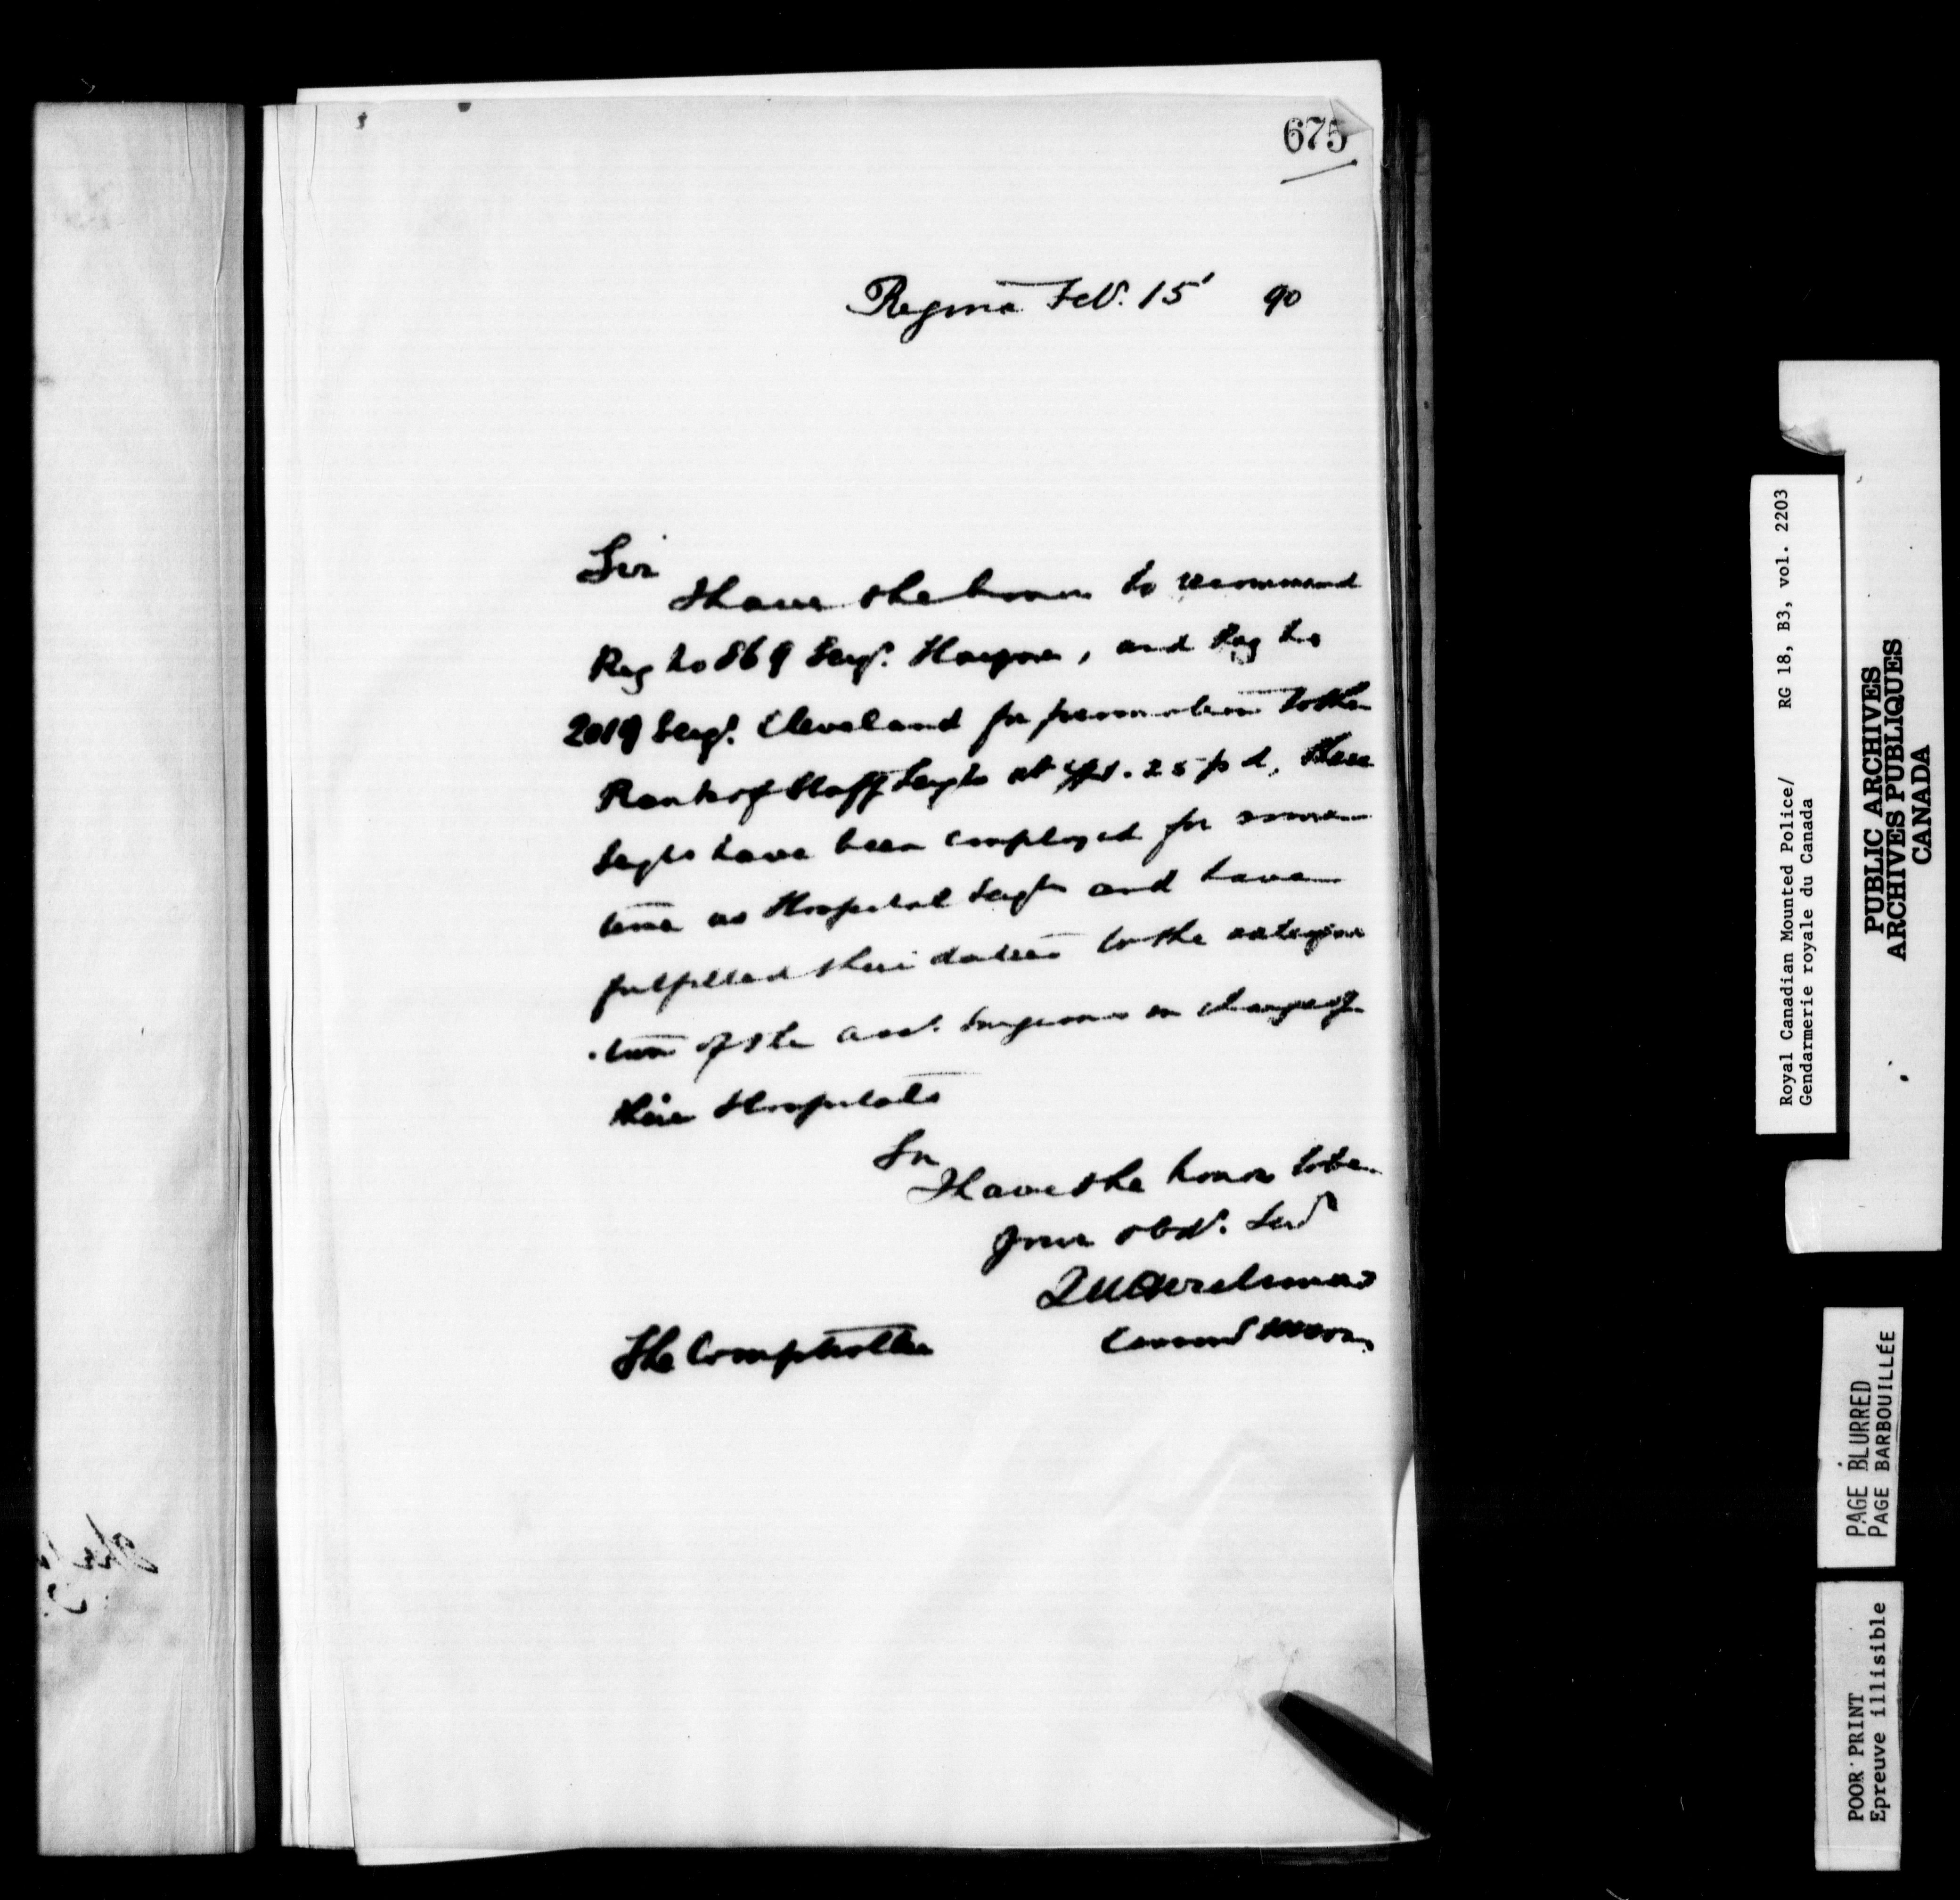 675
Regina Feb. 15' 90
Sir
I have the honor to recommend
Reg No 869 Sergt. , and Reg No
2019 Sergt. Cleveland for promotion to the
Rank of Staff Sergts at $1.25 p d, these
Sergts have been employed for some
time as Hospital Sergts and have
fulfilled their duties to the satisfac
tion of the asst. Surgeons in charge of
their Hospitals
Sir
I have the honor to be
Your obdt. Servt
The Comptroller
Royal Canadian Mounted Police/ RG 18, B3, vol. 2203
Gendarmerie royale du Canada
PUBLIC ARCHIVES
ARCHIVES PUBLIQUES
CANADA
PAGE BLURRED
PAGE BARBOUILLÉE
POOR PRINT
Epreuve illisible